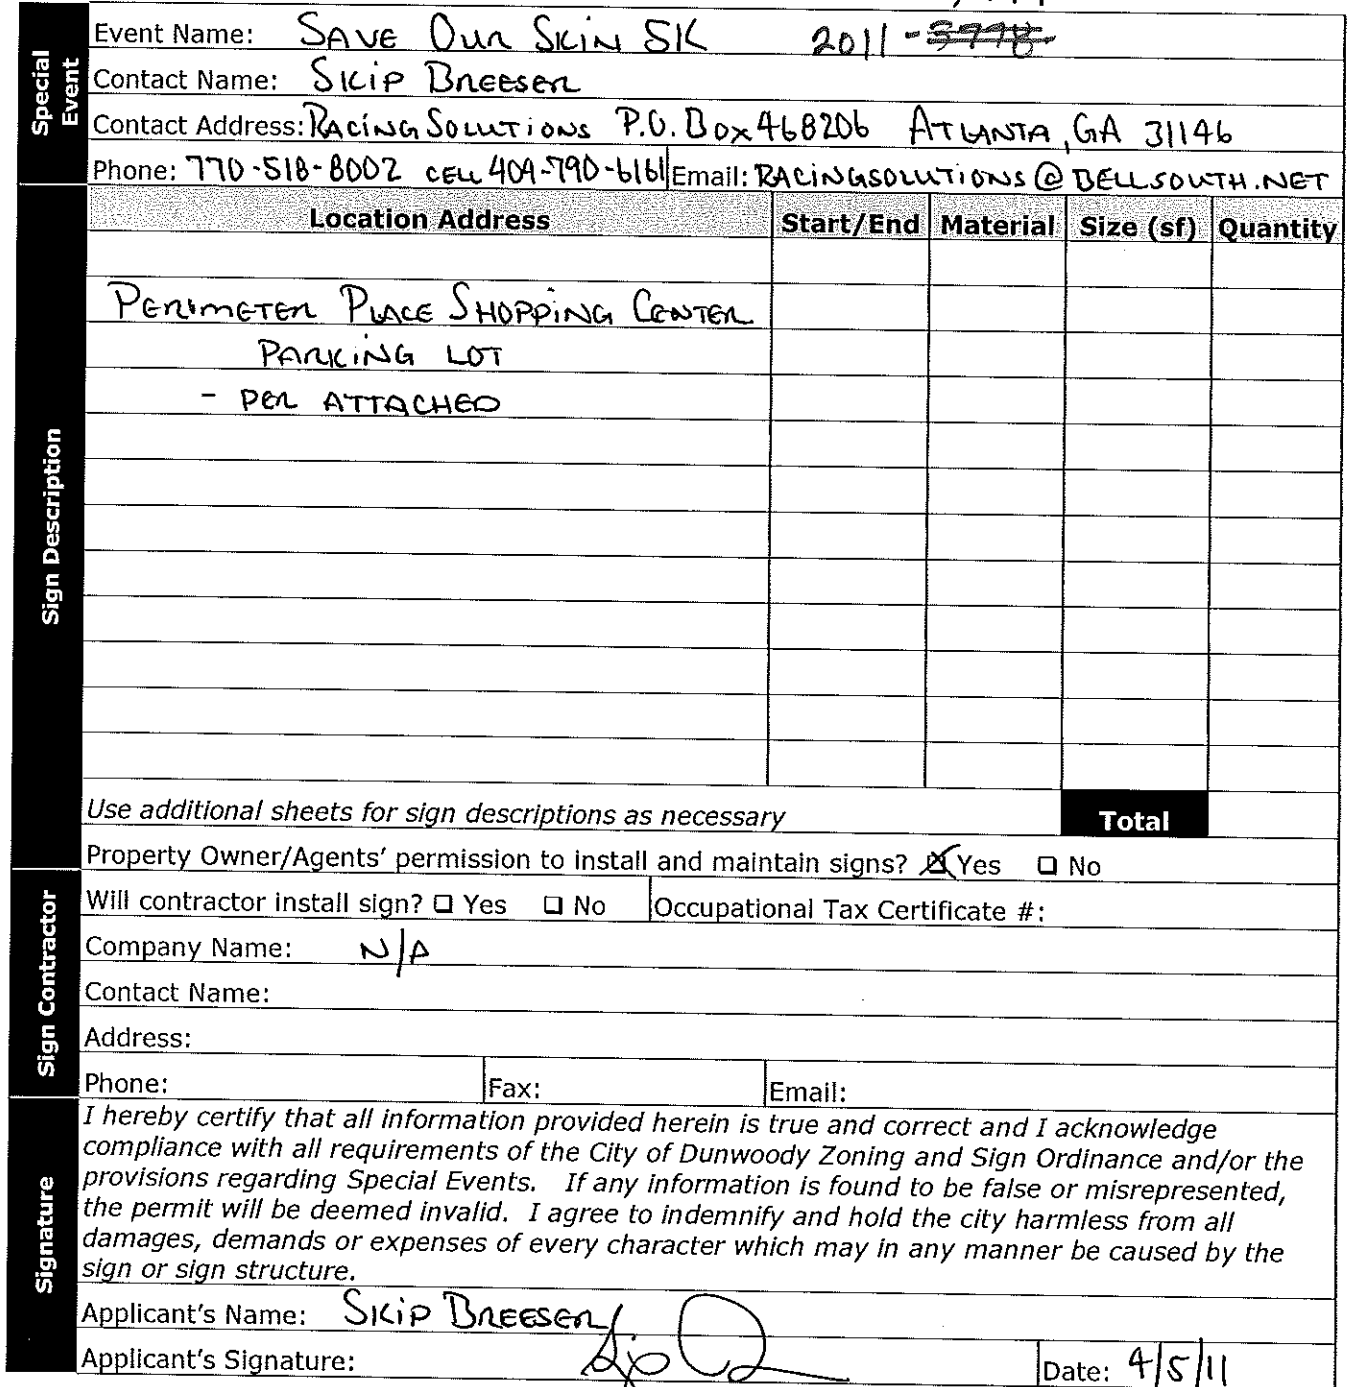 Special Event
Event Name: SAVE OUR SKIN 5K 2011-
Contact Name: SKIP BREESER
Contact Address: RACING SOLUTIONS P.O. BOX 468206 ATLANTA, GA 31146
Phone: 770-518-8002 CELL 404-790-6161 Email: RACINGSOLUTIONS@BELLSOUTH.NET
Sign Description
Location Address Start/End Material Size (sf) Quantity
PERIMETER PLACE SHOPPING CENTER
PARKING LOT
- PER ATTACHED
Use additional sheets for sign descriptions as necessary Total
Property Owner/Agents' permission to install and maintain signs? ☒ Yes ☐ No
Sign Contractor
Will contractor install sign? ☐ Yes ☐ No Occupational Tax Certificate #:
Company Name: N/A
Contact Name:
Address:
Phone: Fax: Email:
Signature
I hereby certify that all information provided herein is true and correct and I acknowledge
compliance with all requirements of the City of Dunwoody Zoning and Sign Ordinance and/or the
provisions regarding Special Events. If any information is found to be false or misrepresented,
the permit will be deemed invalid. I agree to indemnify and hold the city harmless from all
damages, demands or expenses of every character which may in any manner be caused by the
sign or sign structure.
Applicant's Name: SKIP BREESER
Applicant's Signature: Date: 4/5/11